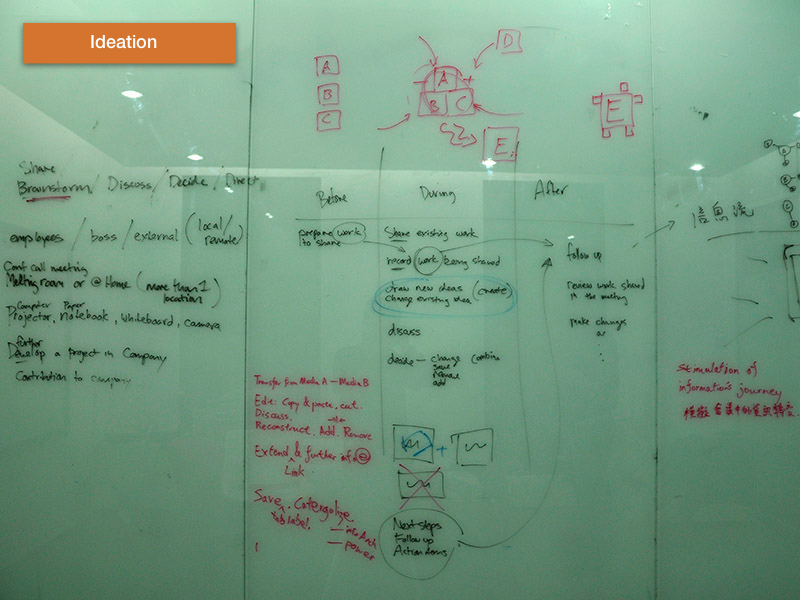 Ideation
D
A
B
C
A
B C
E
E
Share
Brainstorm / Discuss / Decide / Direct
employees / boss / external (local/
remote)
Conf call meeting
Meeting room or @ Home (more than 1
location)
Computer Paper
Projector, Notebook, Whiteboard, camera
further
Develop a project in Company
Contribution to company
Before
During
After
prepare work
to share
Share existing work
record work / being shared
draw new ideas (create)
change existing idea
discuss
decide — change combine
save
remove
add
follow up
review work shared
in the meeting
make changes
or
信息流
A
B
C
Transfer from Media A — Media B
Edit: Copy & paste, cut.
Discuss.
Reconstruct. Add. Remove
Extend & further info
Link
Save. Catergolize.
label.
power
Next steps
Follow up
Action items
Stimulation of
information's journey